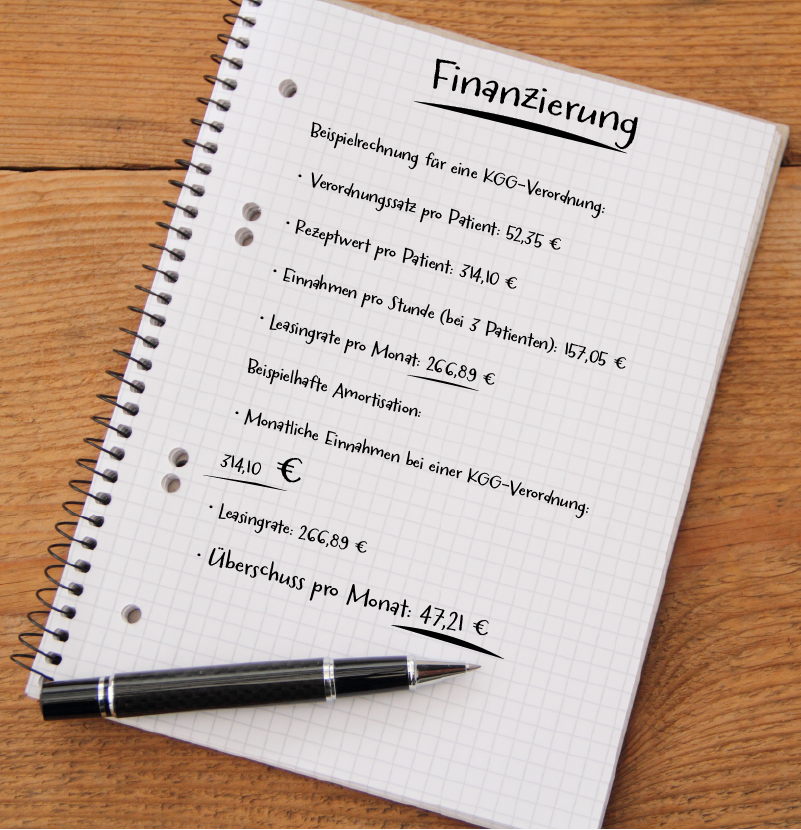 Finanzierung
Beispielrechnung für eine KGG-Verordnung:
• Verordnungssatz pro Patient: 52,35 €
• Rezeptwert pro Patient: 314,10 €
• Einnahmen pro Stunde (bei 3 Patienten): 157,05 €
• Leasingrate pro Monat: 266,89 €
Beispielhafte Amortisation:
• Monatliche Einnahmen bei einer KGG-Verordnung:
314,10 €
• Leasingrate: 266,89 €
• Überschuss pro Monat: 47,21 €